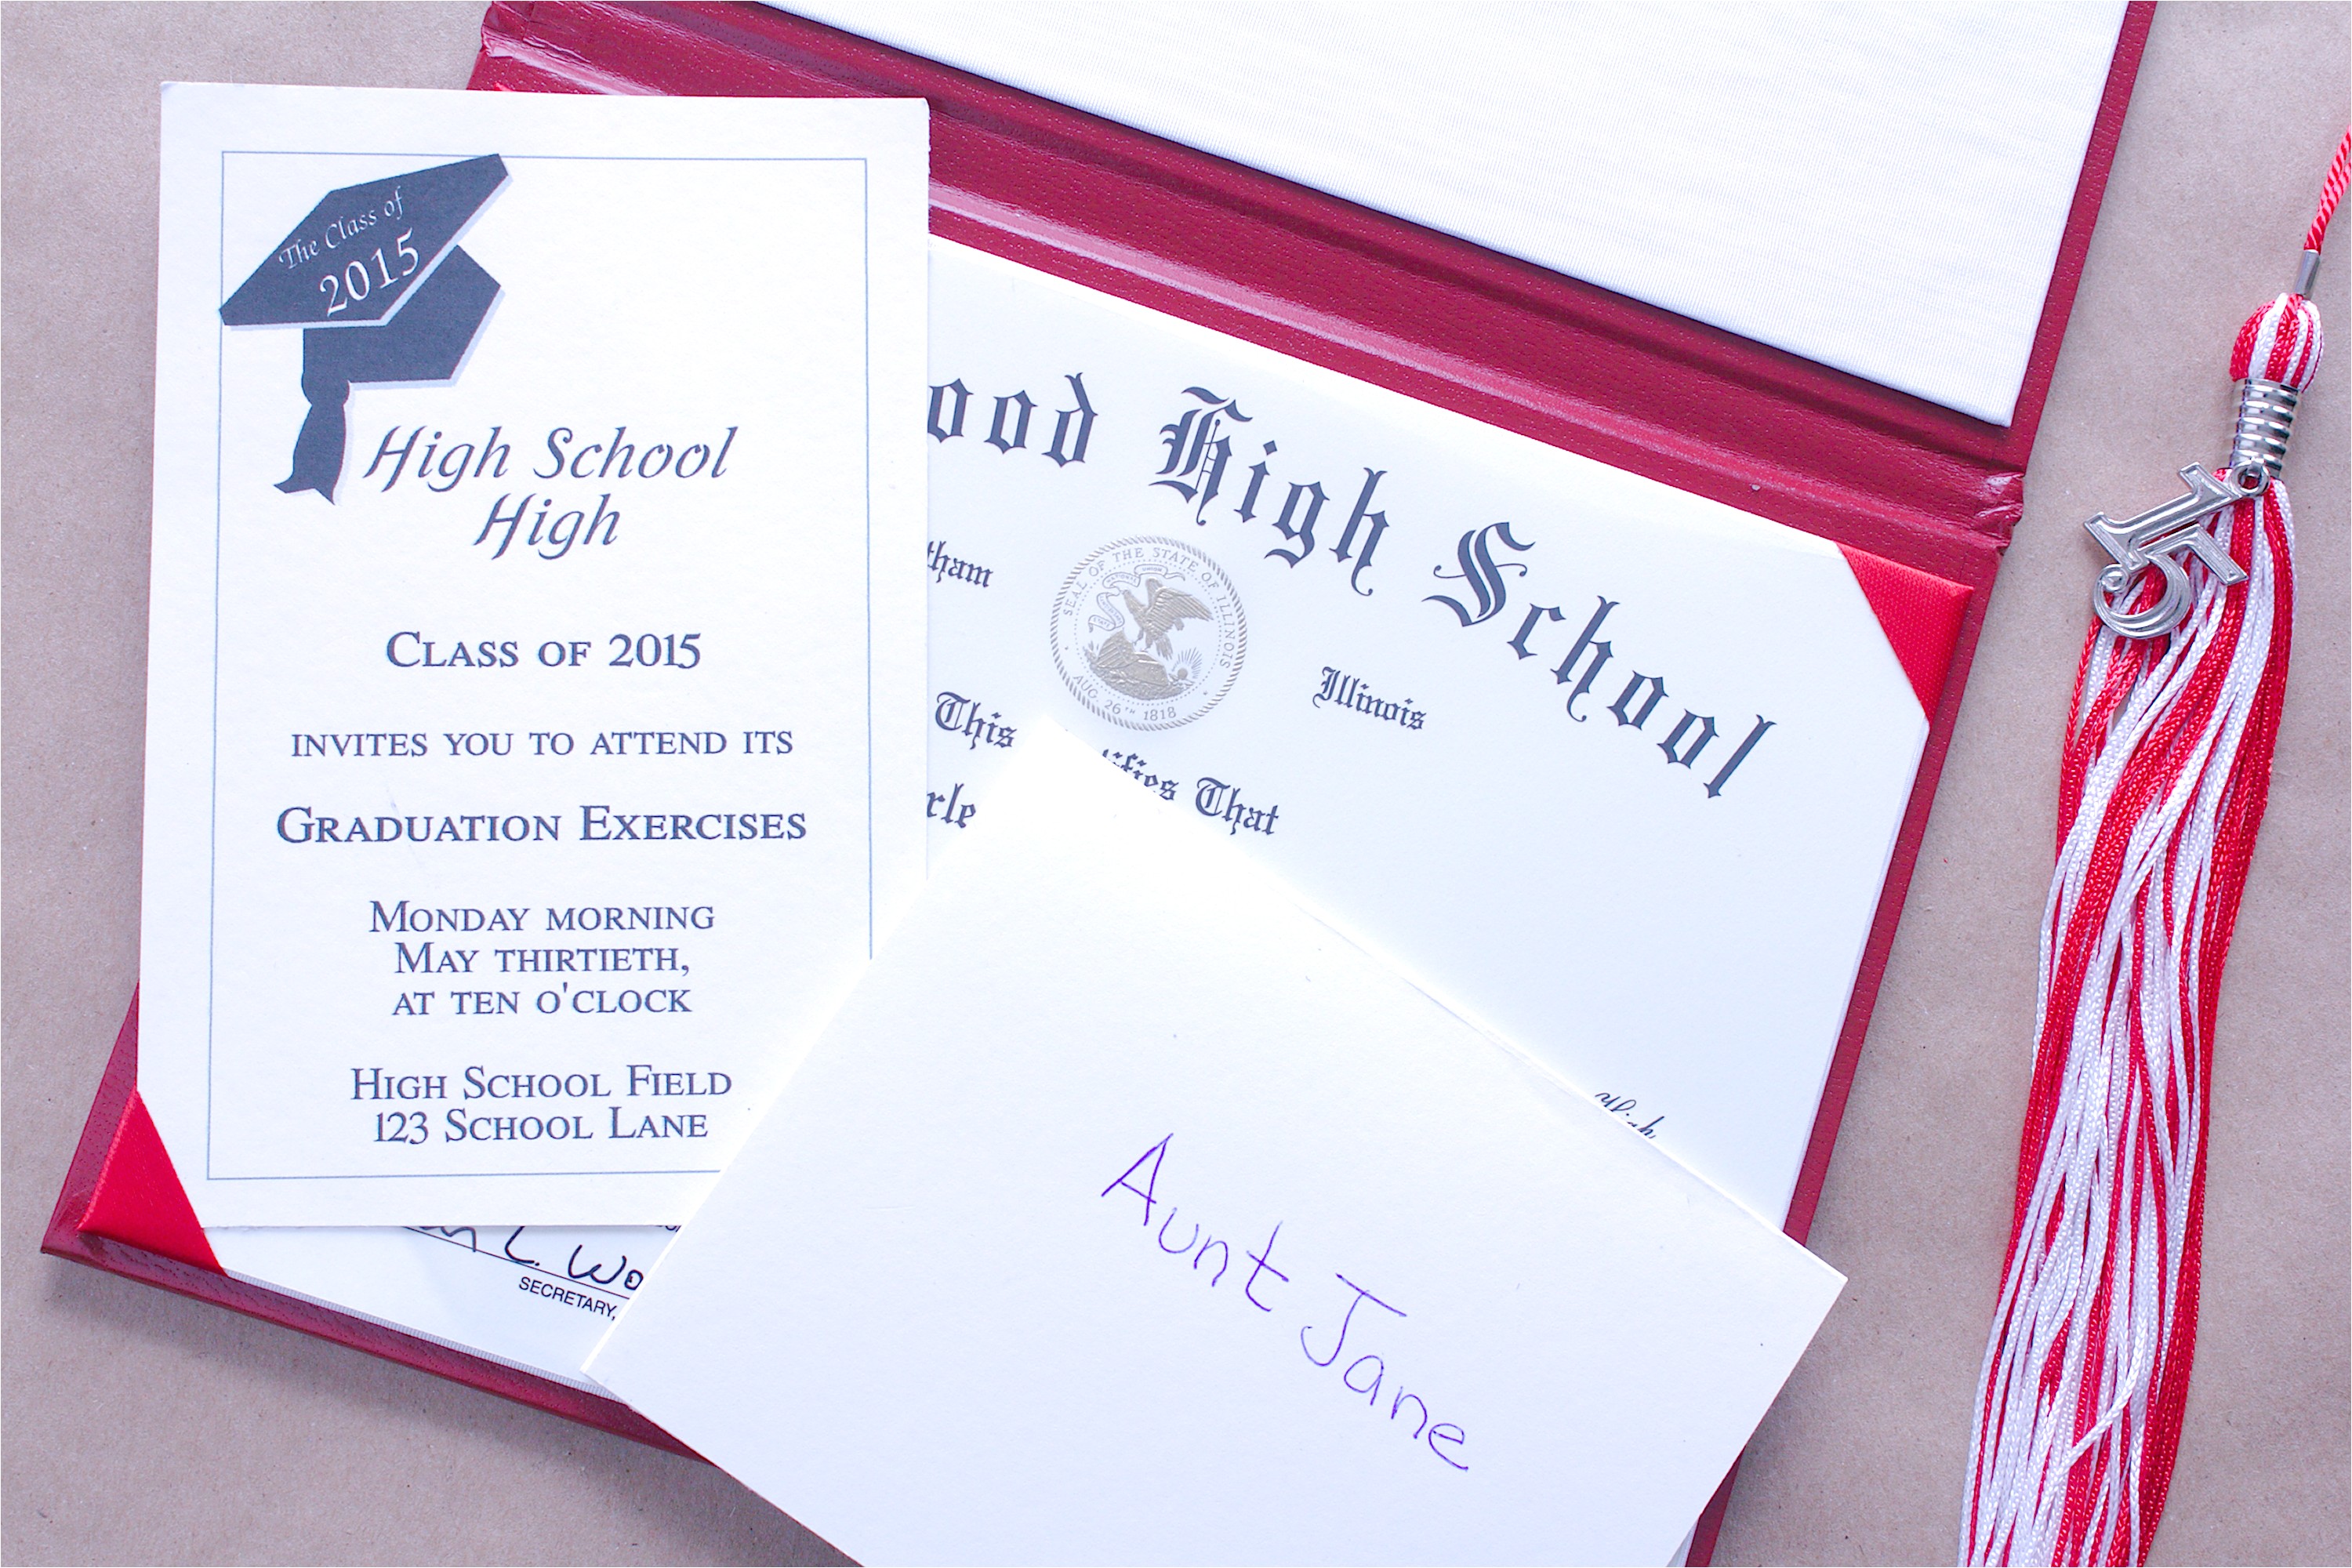 The Class of
2015
High School
High
Class of 2015
invites you to attend its
Graduation Exercises
Monday morning
May thirtieth,
at ten o'clock
High School Field
123 School Lane
ood High School
tham
SEAL OF THE STATE OF ILLINOIS
AUG. 26TH 1818
Illinois
This ifies That
rle
L. Wo
SECRETARY,
Aunt Jane
15